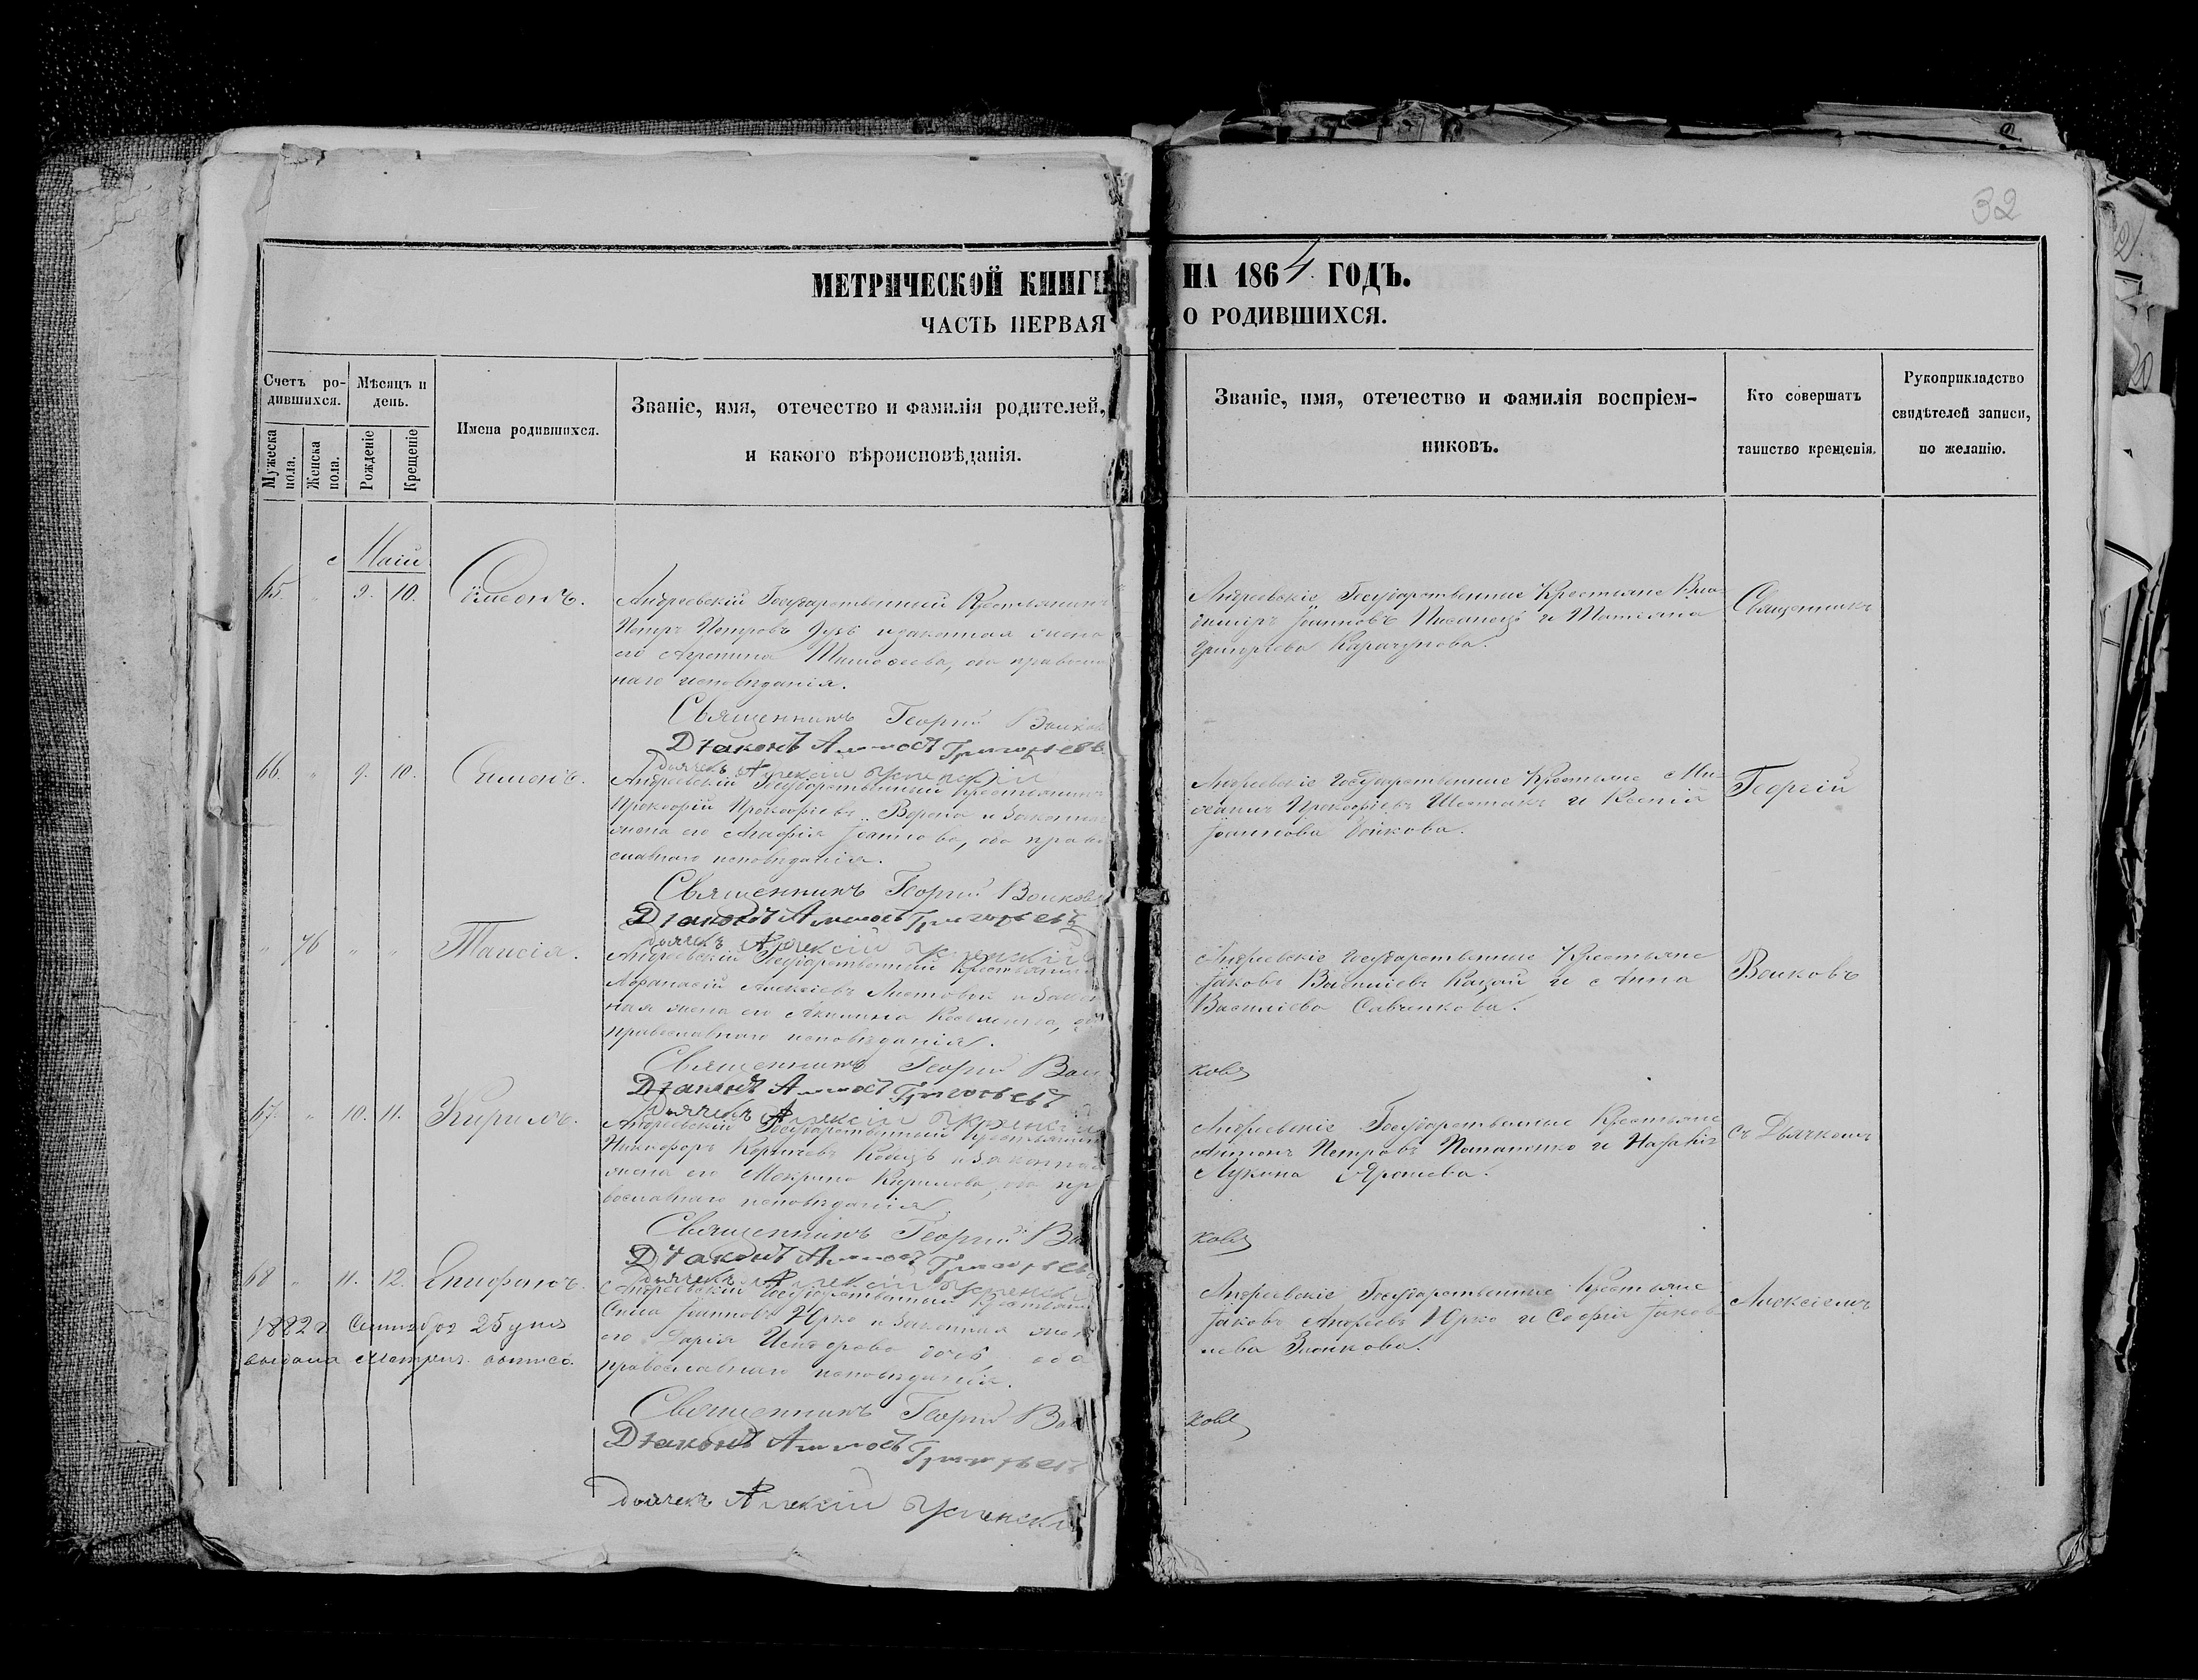 32
МЕТРИЧЕСКОЙ КНИГИ НА 1864 ГОДЪ.
ЧАСТЬ ПЕРВАЯ О РОДИВШИХСЯ.
Счетъ ро-
дившихся.
Мужеска пола.
Женска пола.
Мѣсяцъ и
день.
Рожденіе
Крещеніе
Имена родившихся.
Званіе, имя, отечество и фамилія родителей,
и какого вѣроисповѣданія.
Званіе, имя, отечество и фамилія воспріем-
никовъ.
Кто совершатъ
таинство крещенія.
Рукоприкладство
свидѣтелей записи,
по желанію.
Маій
65. " 9. 10. Симеонъ.
Андреевскій Государственный Крестьянинъ
Петръ Петровъ и законная жена
его Агрепина Тимофеева, оба правосла
наго исповѣданія.
Священникъ Георгій Волков
Діаконъ Григорьевъ
Дьячекъ Алексій Успенскій
Андреевскіе Государственные Крестьяне Вла-
димиръ Іоанновъ Писанецъ и Татіяна
Григоріева
Священникъ
66. " 9. 10. Симонъ.
Андреевскій Государственный Крестьянинъ
Прокофій Прокофіевъ и законная
жена его Іоаннова, оба право
славнаго исповѣданія.
Священникъ Георгій Волковъ
Діаконъ Григорьевъ
Дьячекъ Алексій Успенскій
Андреевскіе Государственные Крестьяне Ми-
хаилъ Прокофіевъ Шестакъ и Ксенія
Іоаннова
Георгій
" 76 " " Таисія.
Андреевскій Государственный Крестьянинъ
Афанасій Алексіевъ Листовой и закон
ная жена его Акилина, оба
православнаго исповѣданія.
Священникъ Георгій Волковъ
Діаконъ Григорьевъ
Дьячекъ Алексій Успенскій
Андреевскіе Государственные Крестьяне
Іаковъ Василіевъ и Анна
Василіева Савченкова.
Волковъ
67. " 10. 11. Кирилъ.
Андреевскій Государственный Крестьянинъ
Никифоръ и законная
жена его Мокрина Кирилова, оба пра
вославнаго исповѣданія
Священникъ Георгій Волковъ
Діаконъ Григорьевъ
Дьячекъ Алексій Успенскій
Андреевскіе Государственные Крестьяне
Антонъ Петровъ Потапенко и
Лукина
съ Дьячкомъ
68 " 11. 12. Епифанъ.
1882 г Сентября 25 дня
выдана метрич. выпись.
Андреевскій Государственный Крестьянинъ
Сила Іоанновъ Юрко и законная жена
его Дарія, оба
православнаго исповѣданія.
Священникъ Георгій Волковъ
Діаконъ Григорьевъ
Дьячекъ Алексій Успенскій
Андреевскіе Государственные Крестьяне
Іаковъ Андреевъ Юрко и Софія Іаков
лева
Алексіемъ